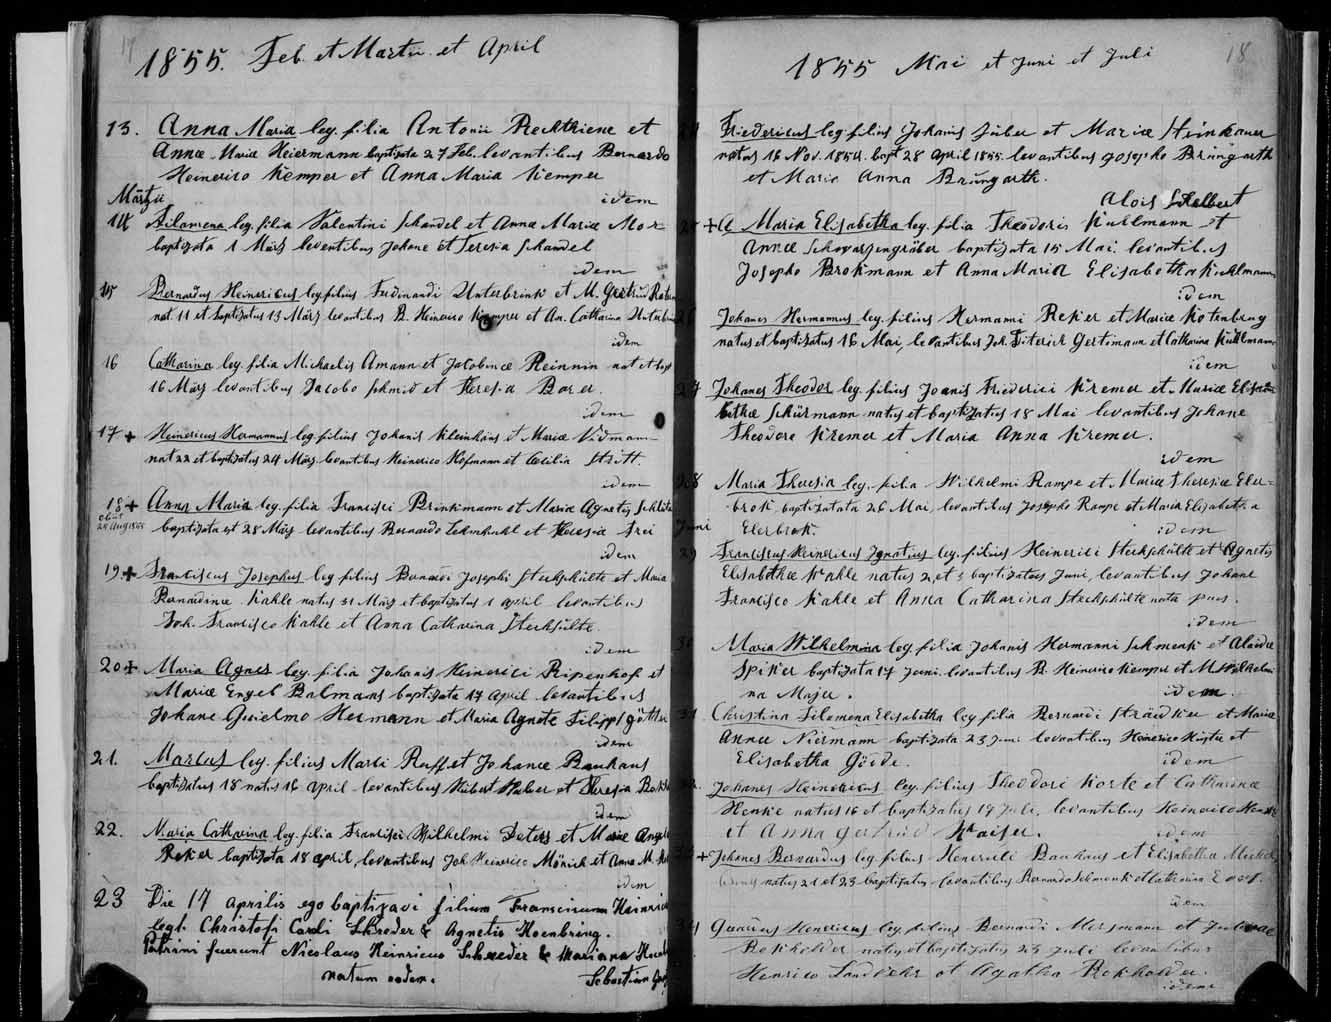 17
1855. Feb. et Martii. et April
13. Anna Maria leg. filia Antonii Rechthiene et
Annæ Mariæ Heiermann baptizata 27 Feb. levantibus Bernardo
Heinerico Kemper et Anna Maria Kemper
idem
Märtzii
14 Filomena leg. filia Valentini Schandel et Anna Mariæ Mor
baptizata 1 März levantibus Johane et Teresia Schandel
idem
15 Bernardus Heinericus leg. filius Ferdinandi Unterbrink et M. Gertrud
nat. 11 et baptizatus 13 März levantibus B. Heinerico Kemper et An. Catharina
idem
16 Catharina leg. filia Michaelis Amann et Jacobinæ Reinnin nat et bapt
16 März levantibus Jacobo Schmid et Theresia Barer
idem
17 + Heinericus Hermannus leg. filius Johanis Kleinhans et Mariæ Widmann
nat 22 et baptizatus 24 März. levantibus Heinerico Hofmann et Cecilia Stritt.
idem
18 + Anna Maria leg. filia Francisci Brinkmann et Mariæ Agnetis
obiit
baptizata est 28 März levantibus Bernardo Lehmkuhl et Theresia Frei
idem
19 + Franciscus Josephus leg. filius Bernardi Josephi Steckschülte et Maria
Bernardinæ Kahle natus 31 März et baptizatus 1 april levantibus
Joh. Francisco Kahle et Anna Catharina Steckschülte.
idem
20 + Maria Agnes leg. filia Johanis Heinerici Ripenhof et
Mariæ Engel Balmans baptizata 17 April levantibus
Johane Guielmo Hermann et Maria Agnete
idem
21. Marcus leg. filius Marci Ruff et Johanæ Bauhaus
baptizatus 18 natus 16 april levantibus Hubert Huber et Theresia
idem
22. Maria Catharina leg. filia Francisci Wilhelmi Peters et Mariæ
Reker baptizata 18 april, levantibus Joh Heinerico Mönich et Anna M.
idem
23 Die 17 aprilis ego baptizavi filium Franciscum
legt. Christofi Caroli Schroder & Agnetis Hoenbring.
Patrini fuerunt Nicolaus Heinricus Schroeder & Mariana
natum eodem. Sebastian
18
1855 Mai et Juni et Juli
24 Friedericus leg. filius Johanis Suber et Mariæ Steinkamer
natus 16 Nov. 1854. bapt 28 april 1855. levantibus Josepho Brüngarth
et Maria Anna Brüngarth.
Alois Schelbert
25 + Maria Elisabetha leg. filia Theodoris Kuhlmann et
Annæ Schwarzengräber baptizata 15 Mai. levantibus
Josepho Brokmann et Anna Maria Elisabetha Kuhlmann
idem
26 Johanes Hermannus leg. filius Hermanni Reker et Mariæ Rotenbrug
natus et baptizatus 16 Mai, levantibus Joh. Diterich Gertsmann et Catharina Kuhlmann
idem
27 Johanes Theodor leg. filius Joanis Friederici Kremer et Mariæ Elisa
bethæ Schürmann natus et baptizatus 18 Mai levantibus Johane
Theodore Kremer et Maria Anna Kremer.
idem
28 Maria Theresia leg. filia Wilhelmi Rampe et Mariæ Theresiæ Eler=
brok, baptizata 26 Mai levantibus Josepho Rampe et Maria Elisabetha
Elerbrok. idem
Juni
29 Franciscus Heinericus Ignatius leg. filius Heinerici Steckschülte et Agnetis
Elisabethæ Kahle natus 2, et 3 baptizatus Juni, levantibus Johane
Francisco Kahle et Anna Catharina Steckschülte nata
idem
30 Maria Wilhelmina leg. filia Johanis Hermanni Schmenk et
Spiker baptizata 17 Juni levantibus B. Heinerico Kemper et M. Wilhelmi
na Majer. idem.
31 Christina Filomena Elisabetha leg. filia Bernardi Sträwker et Mariæ
Annæ Niermann baptizata 23 Juni levantibus Heinerico et
Elisabetha Göede. idem
32. Johanes Heinericus leg. filius Theodori Korte et Catharinæ
Henke natus 16 et baptizatus 19 Juli, levantibus Heinerico
et Anna Gertrud Kaiser. idem
33 + Johanes Bernardus leg. filius Heinerici Bauhaus et Elisabetha
natus 21 et 23 baptizatus levantibus Bernardo Schmenk et Catharina
idem
34 Henericus leg. filius Bernardi Mersmann et
Bokholder natus et baptizatus 23 Juli levantibus
Henrico Landwehr et Agatha Bokholder.
idem